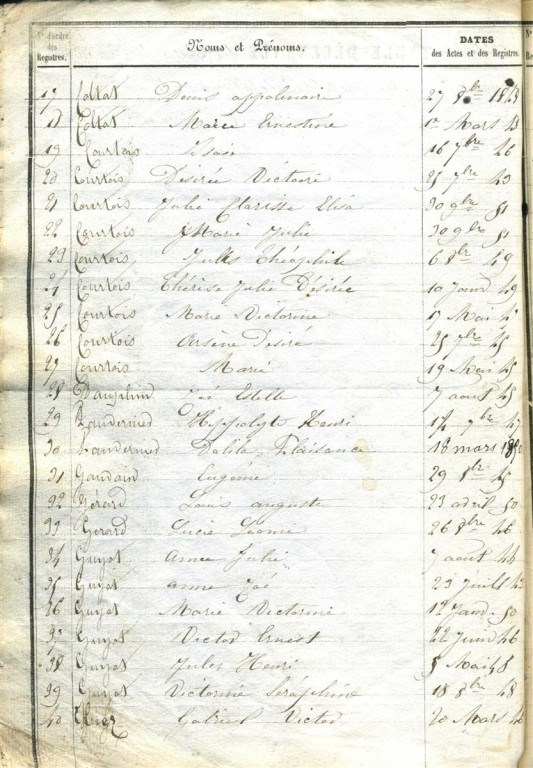 N° d'ordre des Registres. Noms et Prénoms. DATES des Actes et des Registres.
17 Collat Denis appolinaire 27 8bre 1843
18 Collat Marie Ernestine 1er Mars 43
19 Courtois 16 7bre 46
20 Courtois Desirée Victoire 25 7bre 43
21 Courtois Julie Clarisse Elisa 30 9bre 51
22 Courtois Marie Julie 30 9bre 51
23 Courtois Jules Théophile 6 8bre 49
24 Courtois Thérèse Julie Désirée 10 Janv 49
25 Courtois Marie Victorine 17 Mai
26 Courtois Arsène Desiré 25 7bre 45
27 Courtois Marie 19 Mai 45
28 Zoé Estelle 7 août 45
29 Hippolyte Henri 14 7bre 47
30 Dalila Plaisance 18 mars 1850
31 Gaudain Eugénie 29 8bre 45
32 Gérard Louis auguste 23 avril 50
33 Gerard Lucie Léonie 26 8bre 46
34 Guyot Anne Julie 7 août 44
35 Guyot anne Zoé 23 Juill 43
36 Guyot Marie Victorine 12 Janv. 50
37 Guyot Victor Ernest 22 Juin 46
38 Guyot Jules Henri 8 Mai 48
39 Guyot Victorine Séraphine 18 8bre 48
40 Gabriel Victor 20 Mars